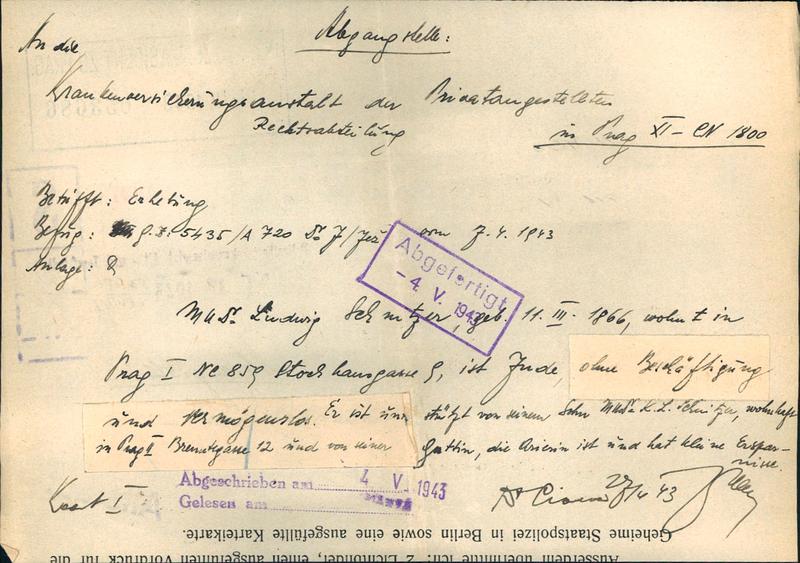 Abgangstelle:
An die
Krankenversicherungsanstalt der Privatangestellten
Rechtsabteilung
in Prag XI - CN 1800
Betrifft: Erhebung
Bezug: g.Z. 5435/A 720 Dr J/Jež vom 7.4.1943
Anlage: 2
Abgefertigt
- 4. V. 1943
MUDr. Ludwig Schnitzer, geb. 11. III. 1866, wohnt in
Prag I NC 859 Stockhausgasse 9, ist Jude, ohne Beschäftigung
und vermögenslos. Er ist unterstützt von seinem Sohn MUDr. K. L. Schnitzer, wohnhaft
in Prag II Brenntegasse 12 und von seiner Gattin, die Arierin ist und hat kleine Erspar-
nisse.
Abgeschrieben am 4 V 1943
Gelesen am
Kart I
29/4 43
Geheime Staatspolizei in Berlin sowie eine ausgefüllte Karteikarte.
Ausserdem übermittle ich: 2 Lichtbilder, einen ausgefüllten Vordruck für die